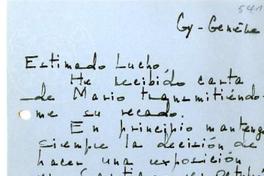 541
Gy-Genève
Estimado Lucho
He recibido carta
de Mario transmitiéndo-
me su recado.
En principio mantengo
siempre la decisión de
hacer una exposición